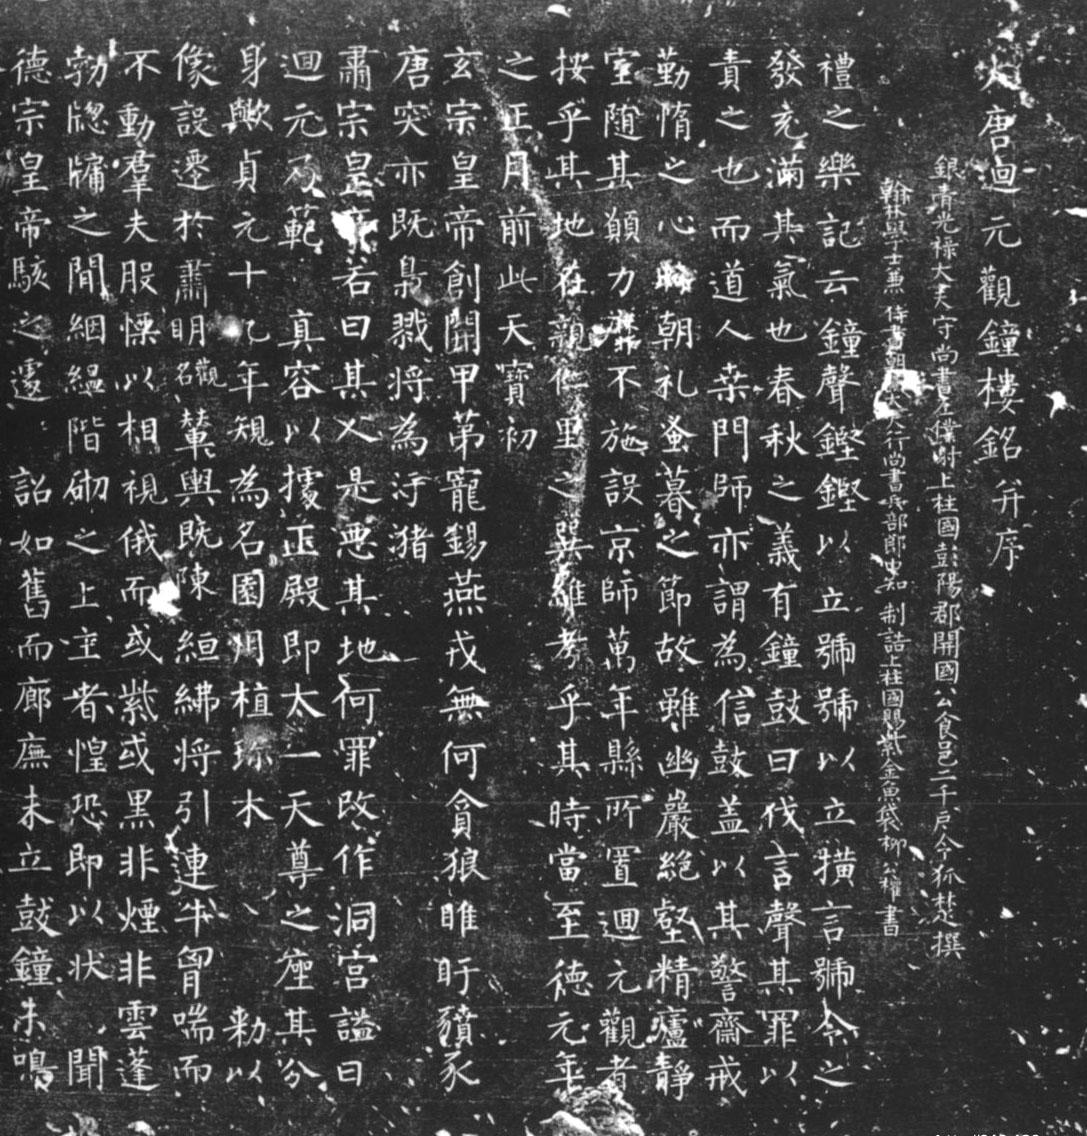 大唐迴元觀鐘樓銘并序
銀青光祿大夫守尚書左僕射上柱國彭陽郡開國公食邑二千戶令狐楚撰
翰林學士兼侍書朝大夫行尚書兵部郎中知制誥上柱國賜紫金魚袋柳公權書
禮之樂記云鐘聲鏗鏗以立號號以立橫言號令之
發充滿其氣也春秋之義有鐘鼓曰伐言聲其罪以
責之也而道人桒門師亦謂為信鼓盖以其警齋戒
勤惰之心時朝礼蚤暮之節故雖幽巖絕壑精廬靜
室隨其願力靡不施設京師萬年縣所置迴元觀者
按乎其地在親仁里之巽維考乎其時當至德元年
之正月前此天寶初
玄宗皇帝創開甲第寵錫燕戎無何貪狼睢盱豶豕
唐突亦既梟戮將為汙猪
肅宗皇帝若曰其人是惡其地何罪改作洞宮謚曰
迴元乃範真容以據正殿即太一天尊之座其分
身歟貞元十九年規為名園用植珎木敕以
像設遷於肅明觀名輦輿既陳絙綍將引連牛胷喘而
不動羣夫股慄以相視俄而或紫或黑非煙非雲蓬
勃牕牖之間絪縕階砌之上主者惶恐即以状聞
德宗皇帝駭之遽遽詔如舊而廊廡未立鼓鐘未鳴